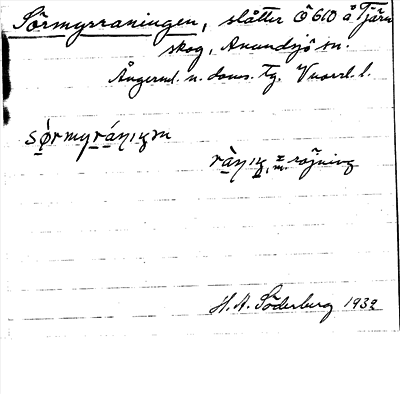 Sörmyrraningen, slåtter Ö 610 å Tjärn
skog, Anundsjö sn.
Ångerml. n. doms. Tg. Vnorrl. l.
sørmyrániŋn
ràniŋ, = röjning
m.
H. A. Söderberg 1932